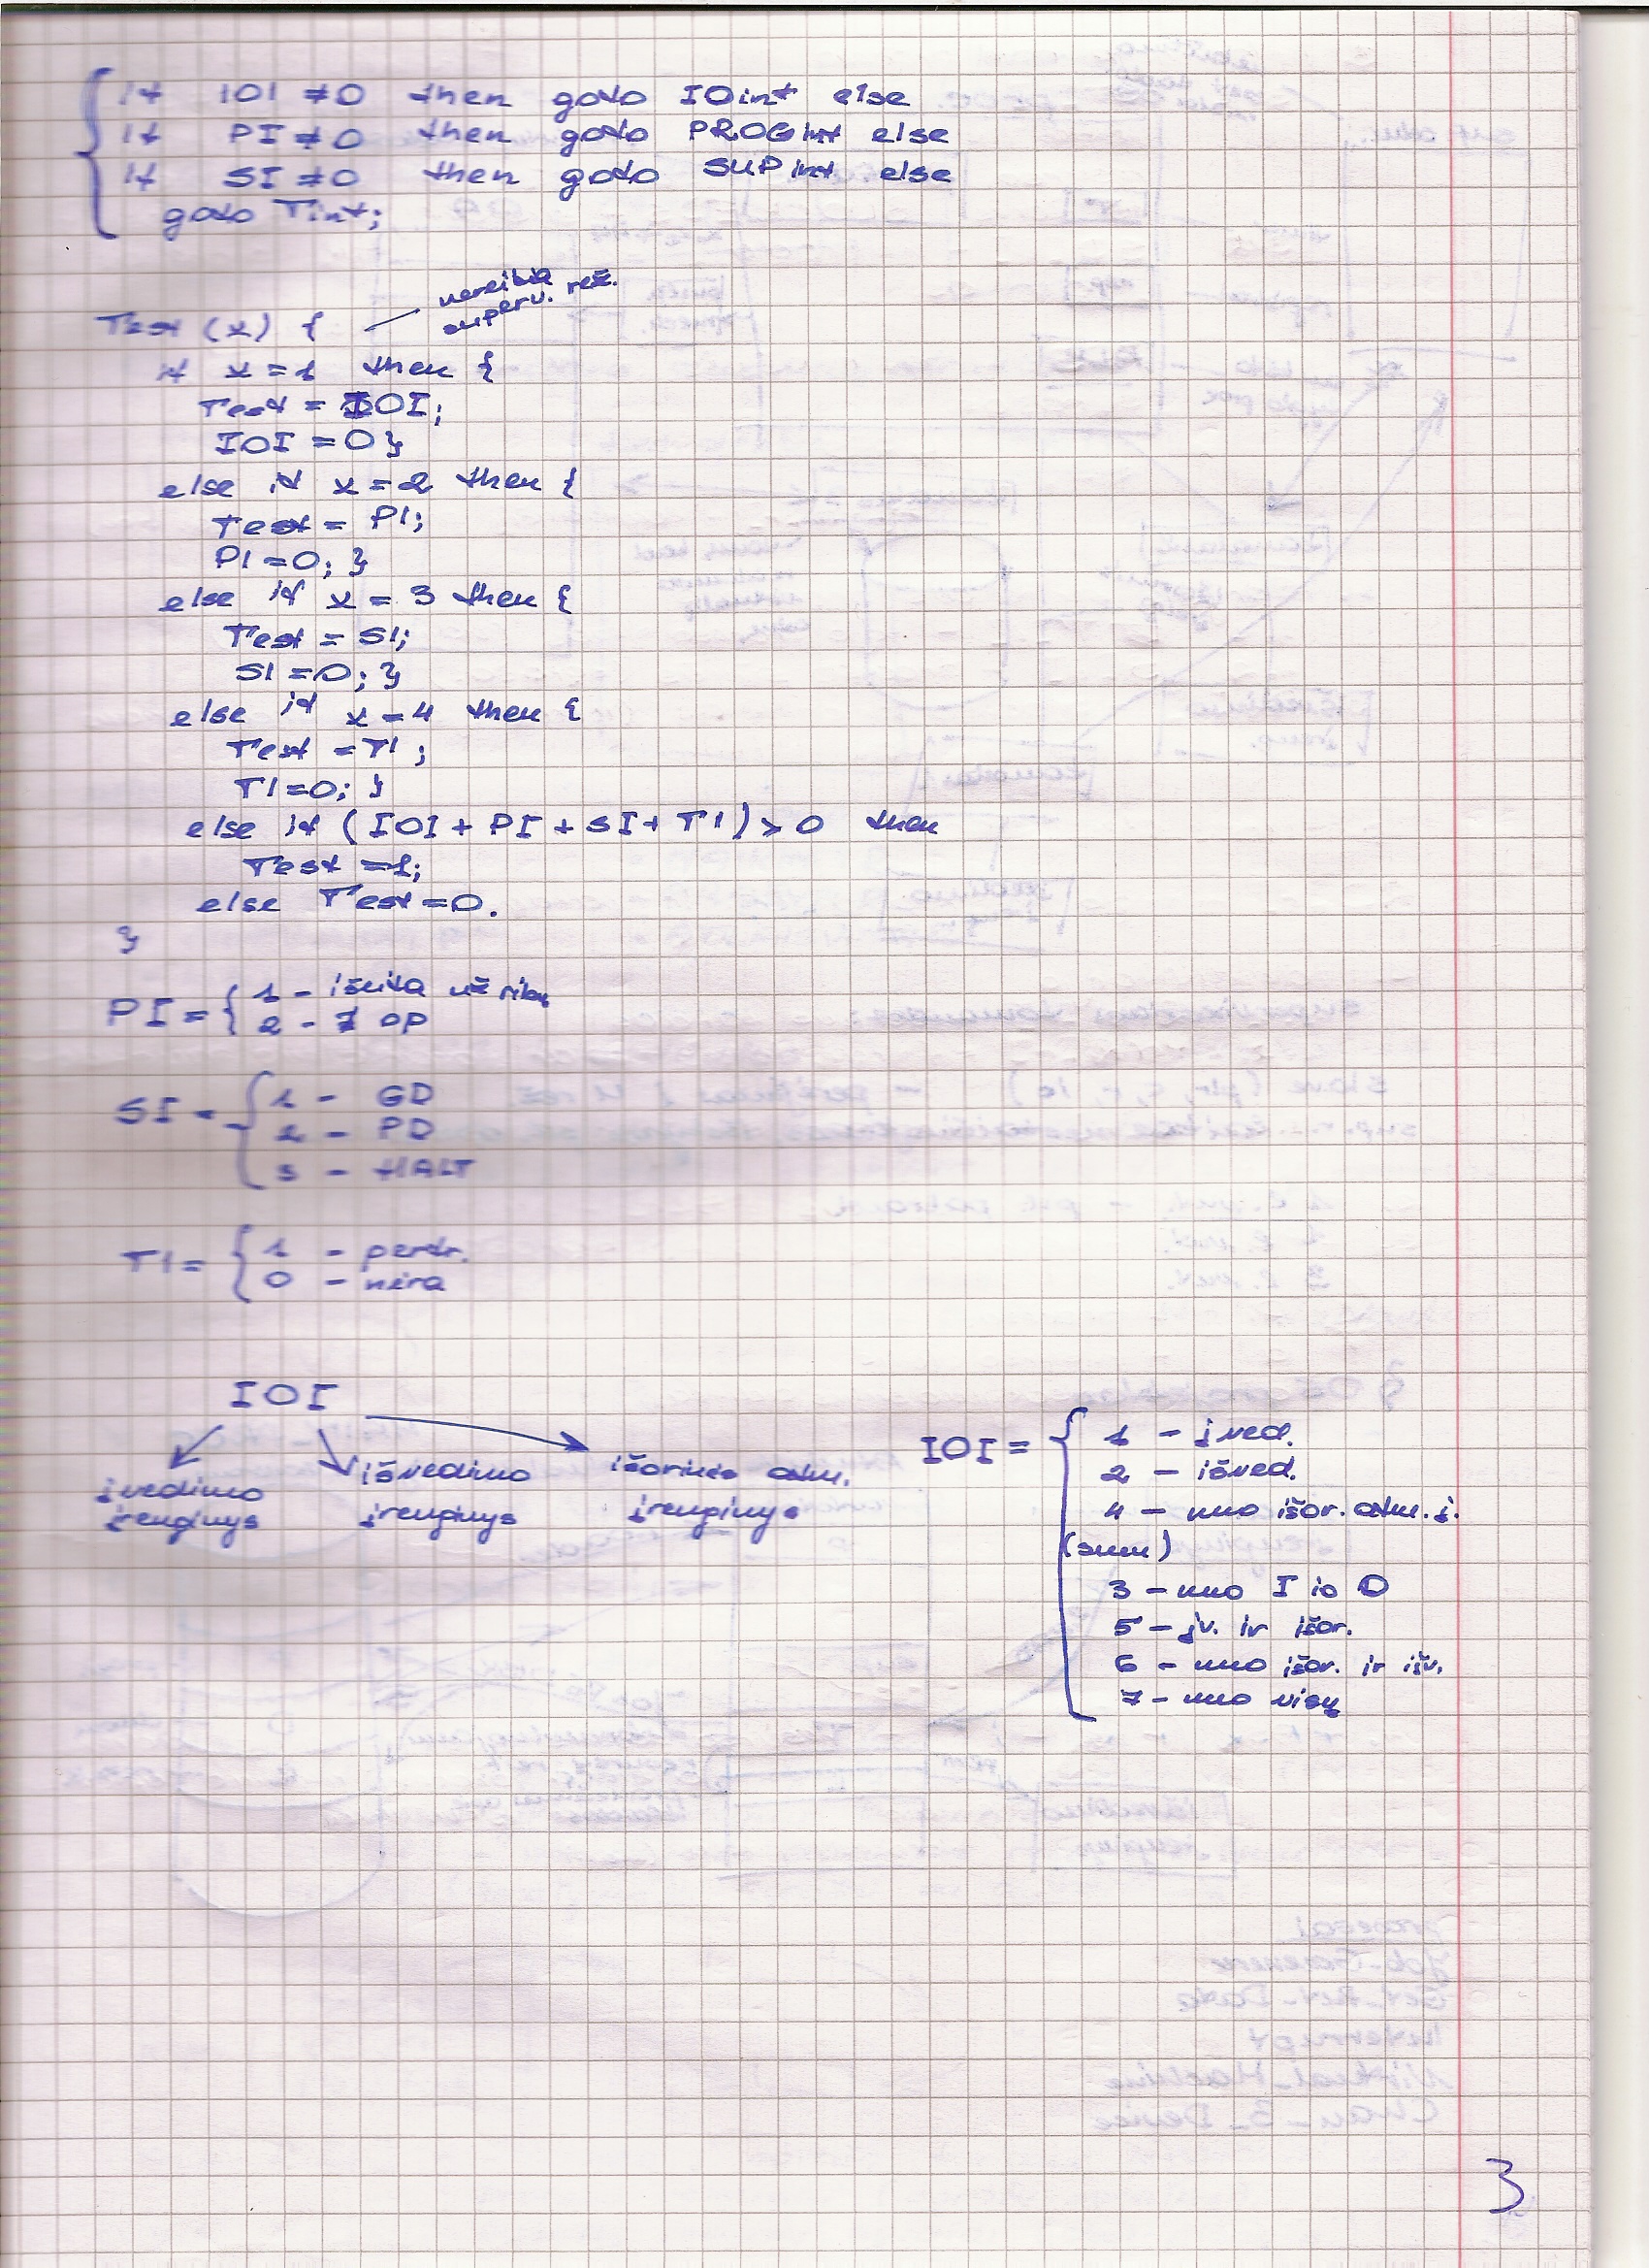 if IOI ≠ 0 then goto IOint else
if PI ≠ 0 then goto PROGint else
if SI ≠ 0 then goto SUPint else
goto Tint;
superv. rež.
Test (x) {
if x = 1 then {
Test = IOI;
IOI = 0 }
else if x = 2 then {
Test = PI;
PI = 0; }
else if x = 3 then {
Test = SI;
SI = 0; }
else if x = 4 then {
Test = TI;
TI = 0; }
else if (IOI + PI + SI + TI) > 0 then
Test = 1;
else Test = 0.
}
PI = { 1 - išeita už ribų
2 - OP
SI = { 1 - GD
2 - PD
3 - HALT
TI = { 1 - pertr.
0 - nėra
IOI
įvedimo įrenginys
išvedimo įrenginys
išorinės atm. įrenginys
IOI = { 1 - įved.
2 - išved.
4 - nuo išor. atm. į.
(sum)
3 - nuo I io O
5 - įv. ir išor.
6 - nuo išor. ir išv.
7 - nuo visų
3